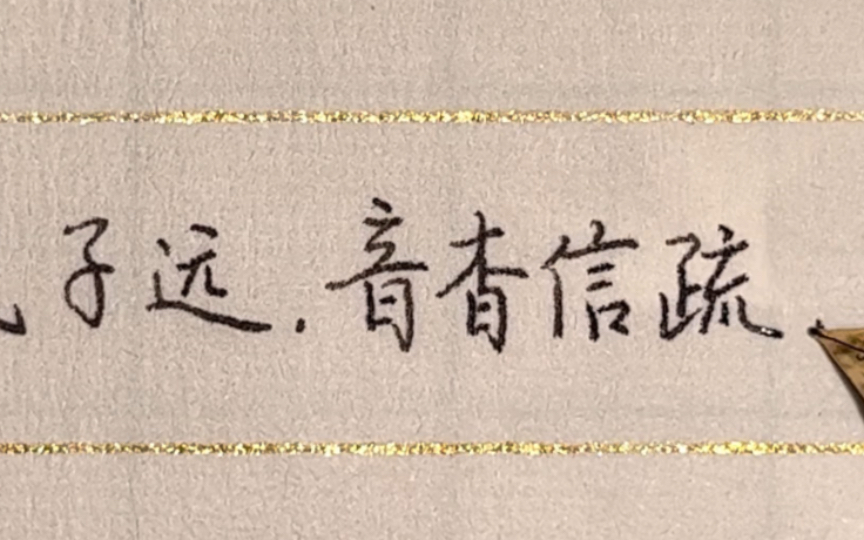 子远.音杳信疏.